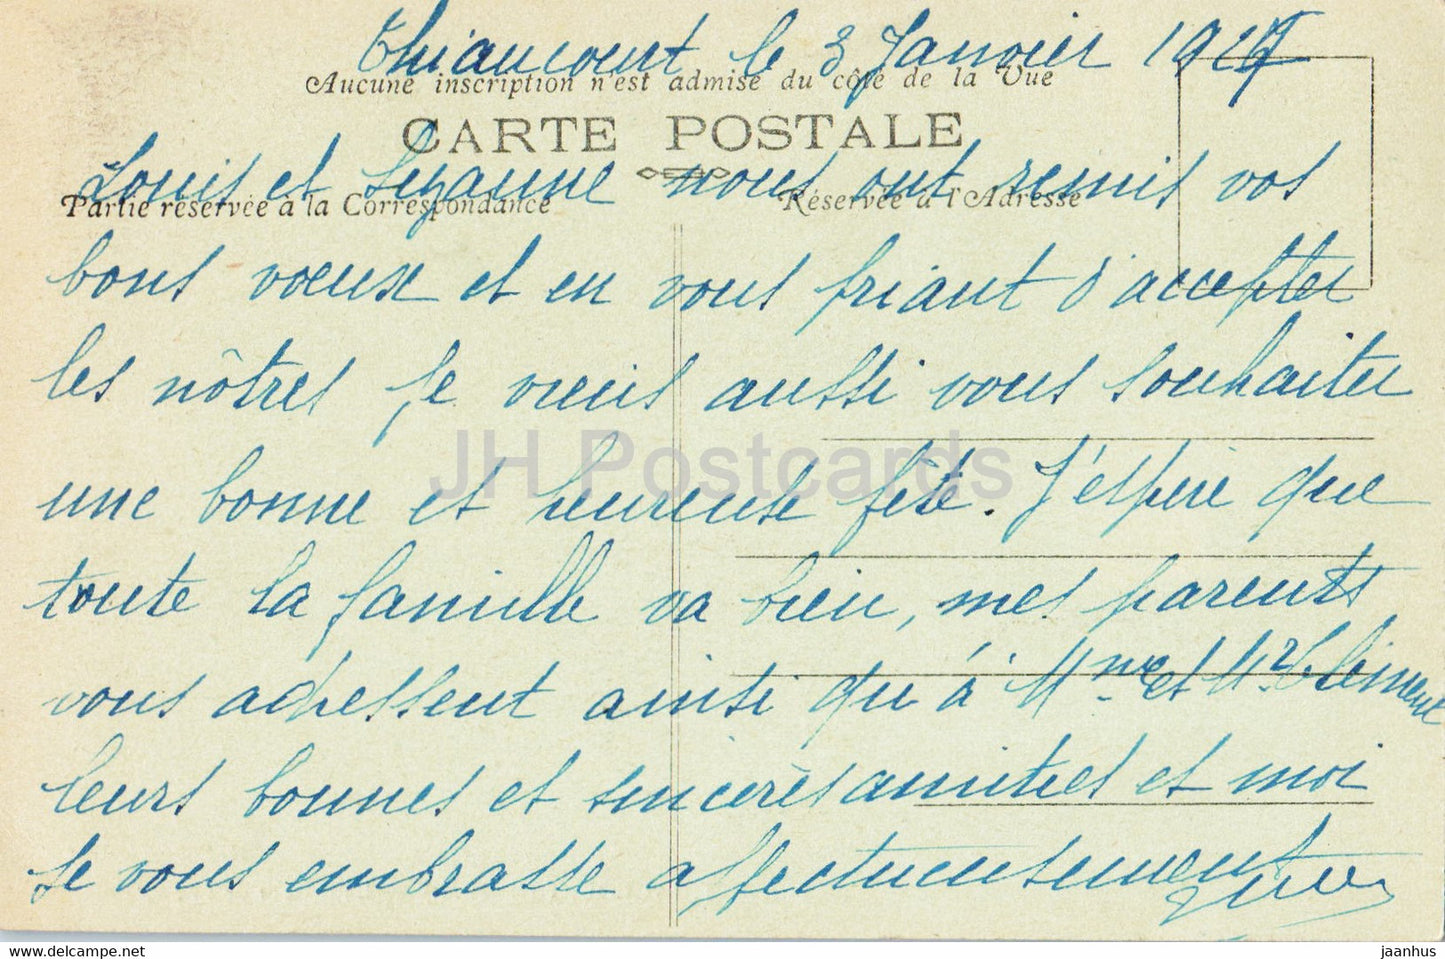 Thiaucourt le 3 Janvier 1927
Aucune inscription n'est admise du côté de la Vue
CARTE POSTALE
Louis et Suzanne nous ont remis vos
Partie réservée à la Correspondance
Réservée à l'Adresse
bons voeux et en vous priant d'accepter
les nôtres je viens aussi vous souhaiter
JH Postcards
une bonne et heureuse fête. J'espère que
toute la famille va bien, mes parents
vous adressent ainsi qu'à Mme et Mr Clément
leurs bonnes et sincères amitiés et moi
je vous embrasse affectueusement
jaanhus
www.delcampe.net